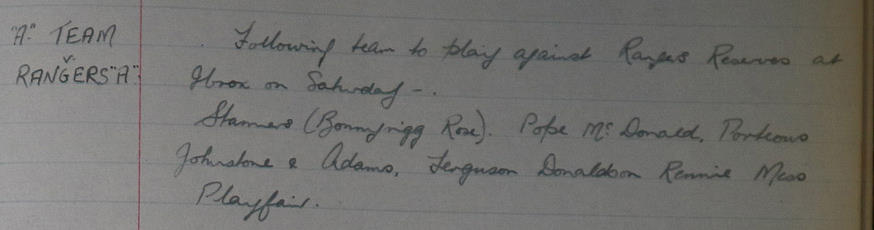 "A" TEAM
v
RANGERS "A".
Following team to play against Rangers Reserves at
Ibrox on Saturday -.
Stanners (Bonnyrigg Rose). Pope McDonald, Porteous
Johnstone & Adams, Ferguson Donaldson Rennie Mess
Playfair.